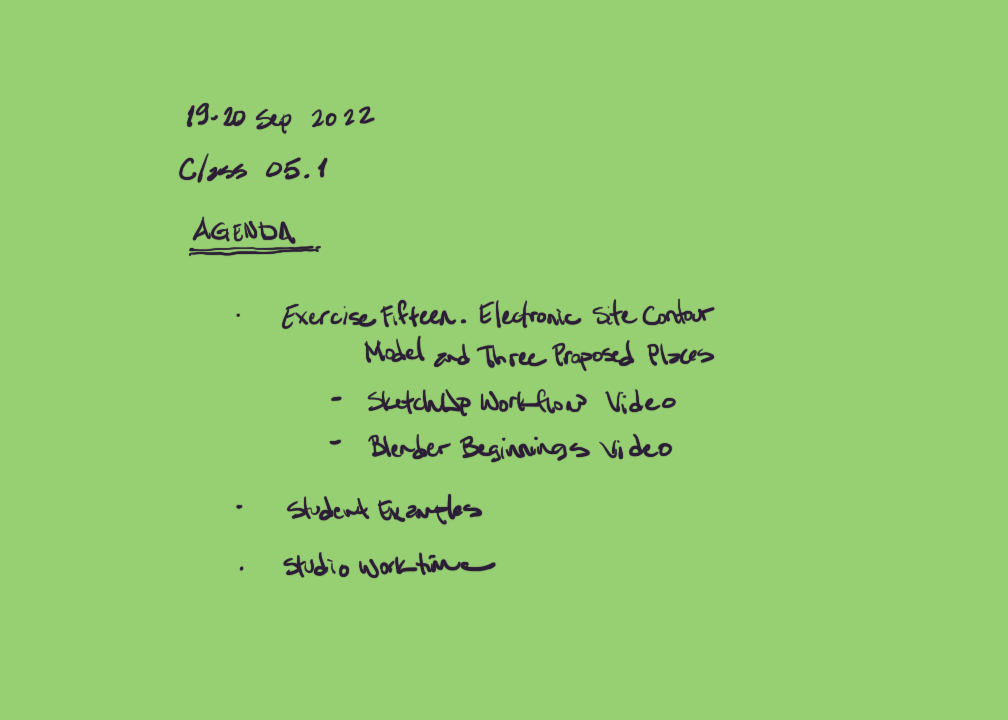 19-20 Sep 2022
Class 05.1
AGENDA
· Exercise Fifteen. Electronic Site Contour
Model and Three Proposed Places
- SketchUp Workflow Video
- Blender Beginnings Video
· Student Examples
· Studio Worktime